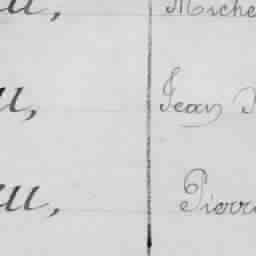 u, Miche
u, Jean
u, Pierr